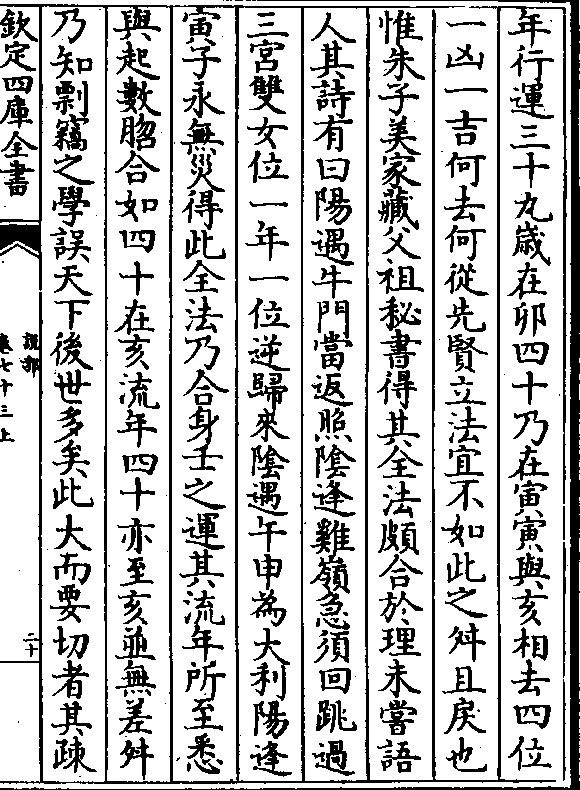 年行運三十九歳在卯四十乃在寅寅與亥相去四位
一凶一吉何去何從先賢立法宜不如此之舛且戾也
惟朱子美家藏父祖秘書得其全法頗合於理未嘗語
人其詩有曰陽遇牛門當返照陰逢雞嶺急須回跳過
三宮雙女位一年一位逆歸來陰遇午申為大利陽逢
寅子永無災得此全法乃合身壬之運其流年所至悉
與起數脗合如四十在亥流年四十亦至亥並無差舛
乃知剽竊之學誤天下後世多矣此大而要切者其疎
欽定四庫全書
說郛
卷七十三上
二十